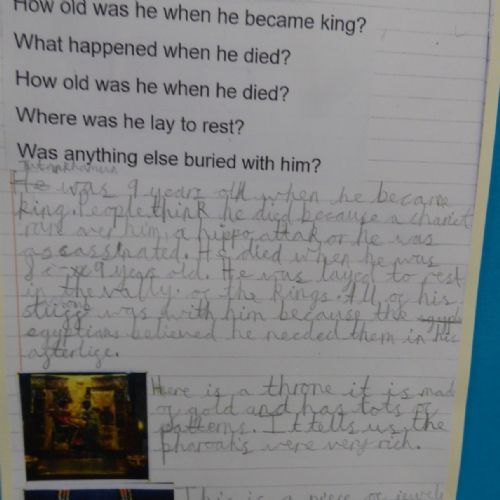 How old was he when he became king?
What happened when he died?
How old was he when he died?
Where was he lay to rest?
Was anything else buried with him?
Tutankhamun
He was 9 years old when he became
king. People think he died because a chariot
ran over him, a hippo attak or he was
assassinated. He died when he was
9 years old. He was layed to rest
in the vally of the kings. All of his
stuff was with him because the
egyptians believed he needed them in his
afterlife.
Here is a throne it is made
of gold and has lots of
patterns. It tells us the
pharoahs were very rich.
This is a piece of